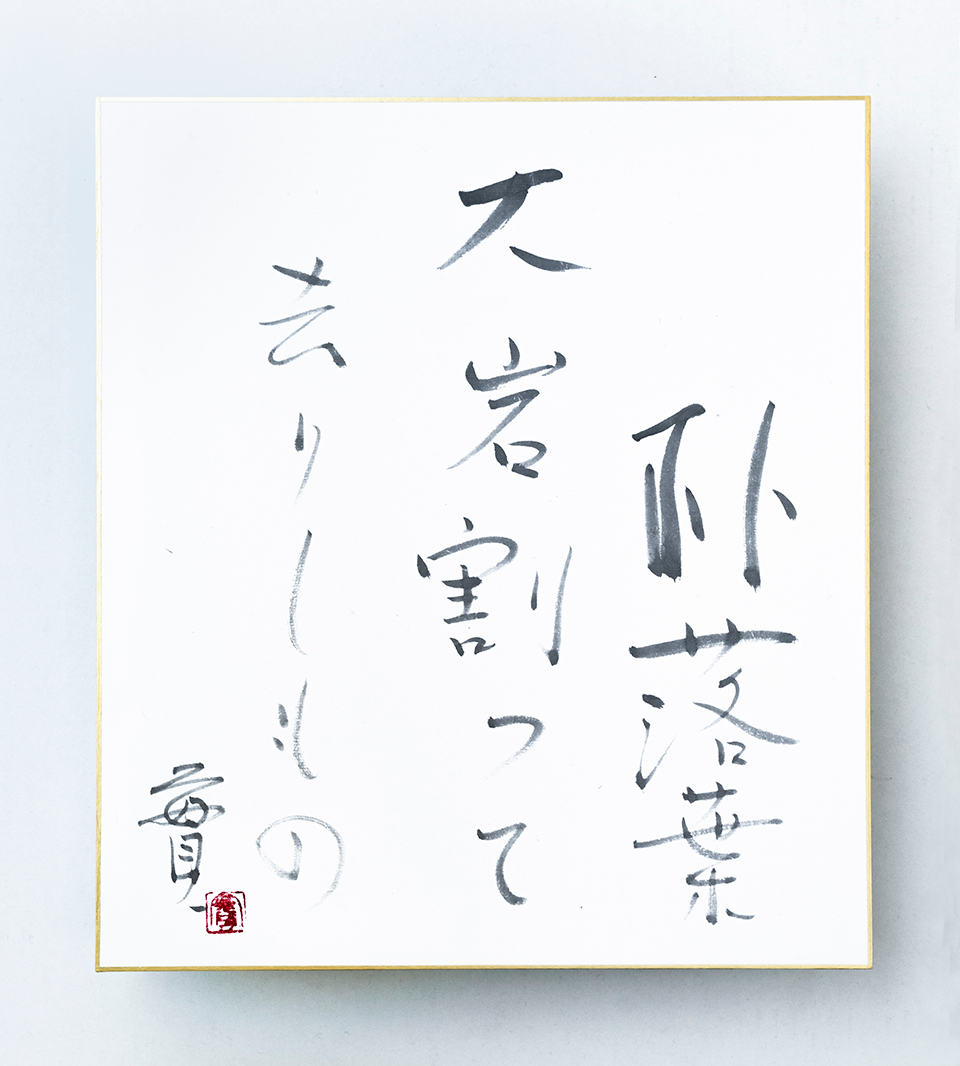 朴落葉
大岩割つて
去りしもの